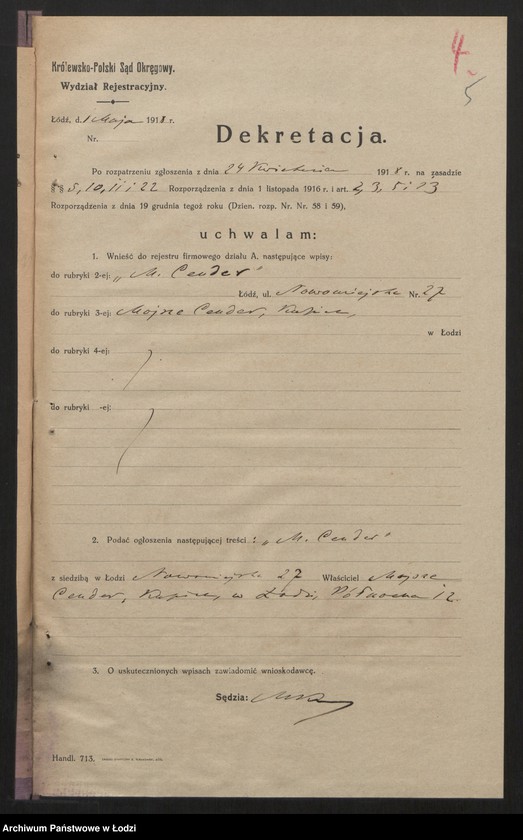 4
5
Królewsko-Polski Sąd Okręgowy.
Wydział Rejestracyjny.
Łódź, d. 1 Maja 1918 r.
Nr.
Dekretacja.
Po rozpatrzeniu zgłoszenia z dnia 24 Kwietnia 1918 r. na zasadzie
§§ 8, 10, 11 i 22 Rozporządzenia z dnia 1 listopada 1916 r. i art. 2, 3, 5 i 13
Rozporządzenia z dnia 19 grudnia tegoż roku (Dzien. rozp. Nr. Nr. 58 i 59),
uchwalam:
1. Wnieść do rejestru firmowego działu A, następujące wpisy:
do rubryki 2-ej: „M. Cender"
Łódź, ul. Nowomiejska Nr. 27
do rubryki 3-ej: Mojsze Cender, Kupiec,
w Łodzi
do rubryki 4-ej:
do rubryki -ej:
2. Podać ogłoszenia następującej treści: „M. Cender"
z siedzibą w Łodzi Nowomiejska 27 Właściciel Mojsze
Cender, Kupiec, w Łodzi, Północna 12.
3. O uskutecznionych wpisach zawiadomić wnioskodawcę.
Sędzia:
Handl. 713.
Archiwum Państwowe w Łodzi